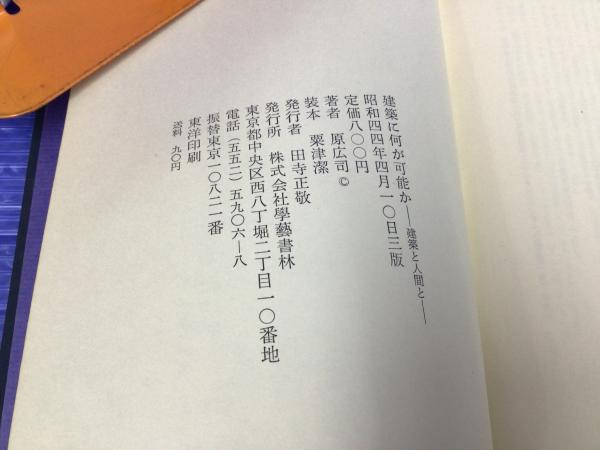 建築に何が可能か——建築と人間と——
昭和四四年四月一〇日三版
定価八〇〇円
著者 原広司 ©
装本 粟津潔
発行者 田寺正敬
発行所 株式会社學藝書林
東京都中央区西八丁堀二丁目一〇番地
電話(五五二)五九〇六―八
振替東京一〇八二一番
東洋印刷
送料 九〇円